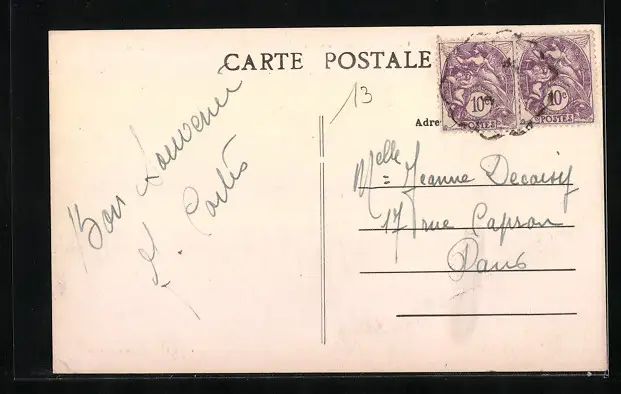 CARTE POSTALE
10c
POSTES
10c
POSTES
13
Adre
Bon Souvenir
Melle Jeanne
17 rue Capron
Paris